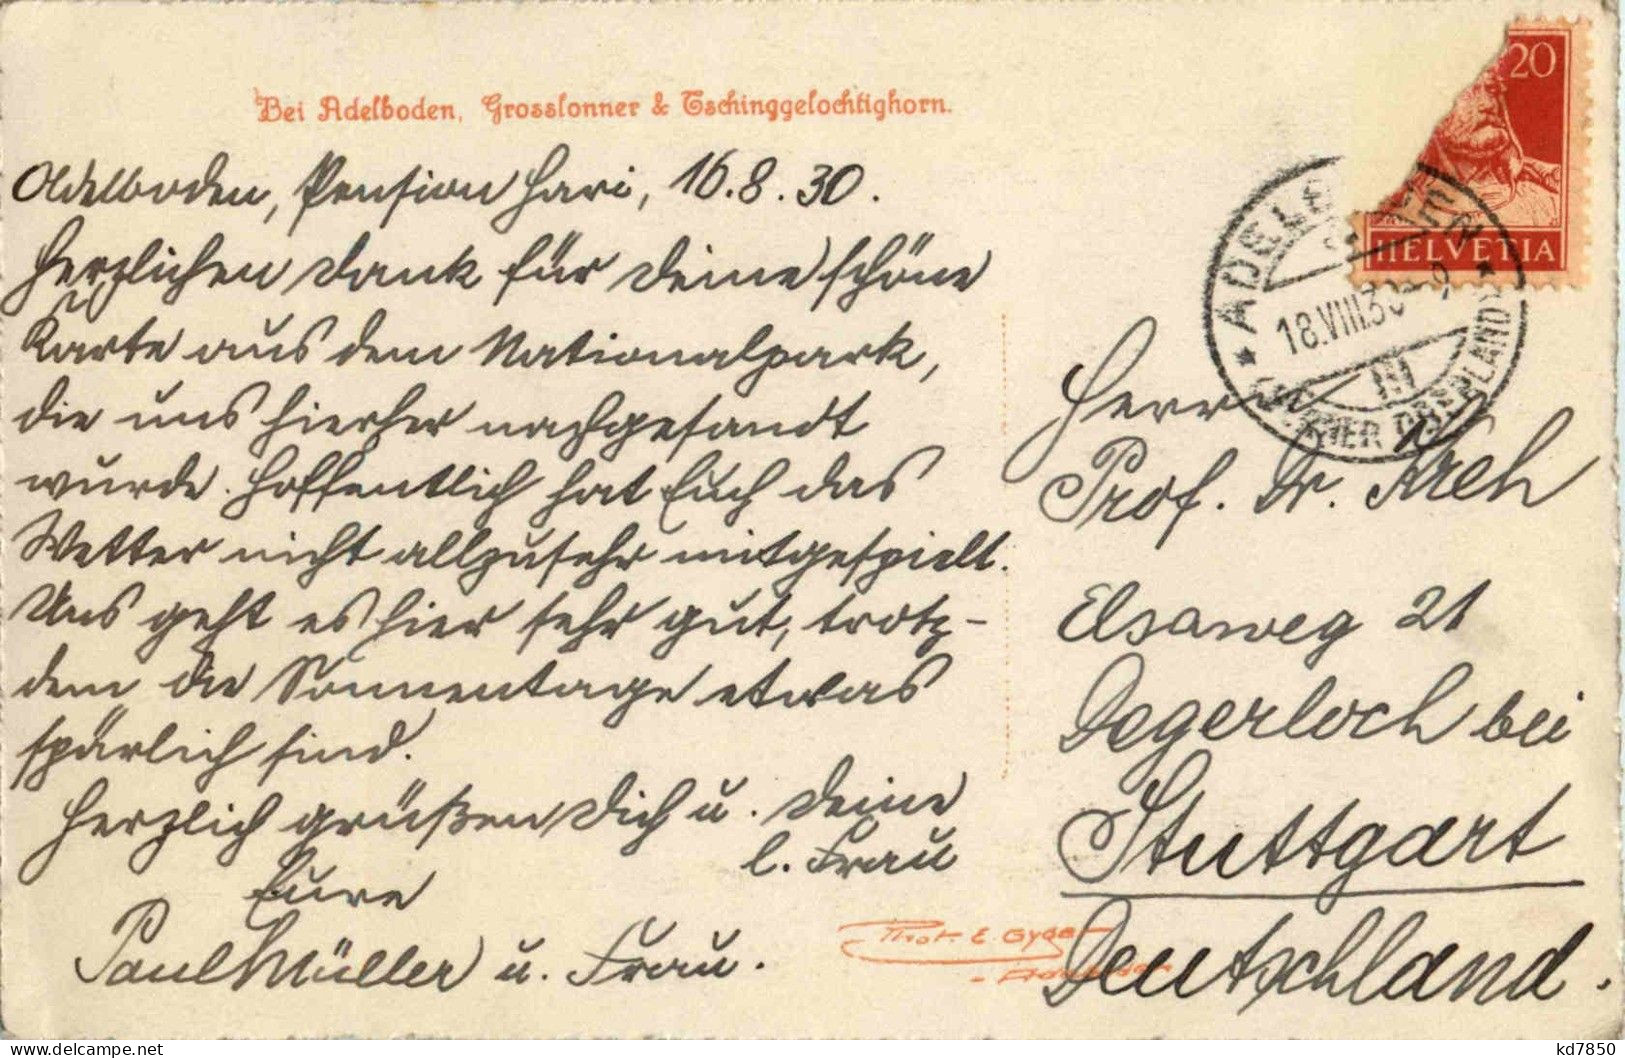 Bei Adelboden, Grosslonner & Tschinggelochtighorn.
Adelboden, Pension Hari, 16.8.30.
Herzlichen Dank für Deine schöne
Karte aus dem Nationalpark,
die uns hierher nachgesandt
wurde. Hoffentlich hat Euch das
Wetter nicht allzusehr mitgespielt.
Uns geht es hier sehr gut, trotz-
dem die Sonnentage etwas
spärlich sind.
Herzlich grüßen Dich u. Deine
l. Frau
Eure
Paul Müller u. Frau.
Phot. E. Gyger
- Adelboden
20
HELVETIA
18.VIII.30
III
BERNER OBERLAND
Herrn
Prof. Dr.
Elsaweg 21
Degerloch bei
Stuttgart
Deutschland.
kd7850